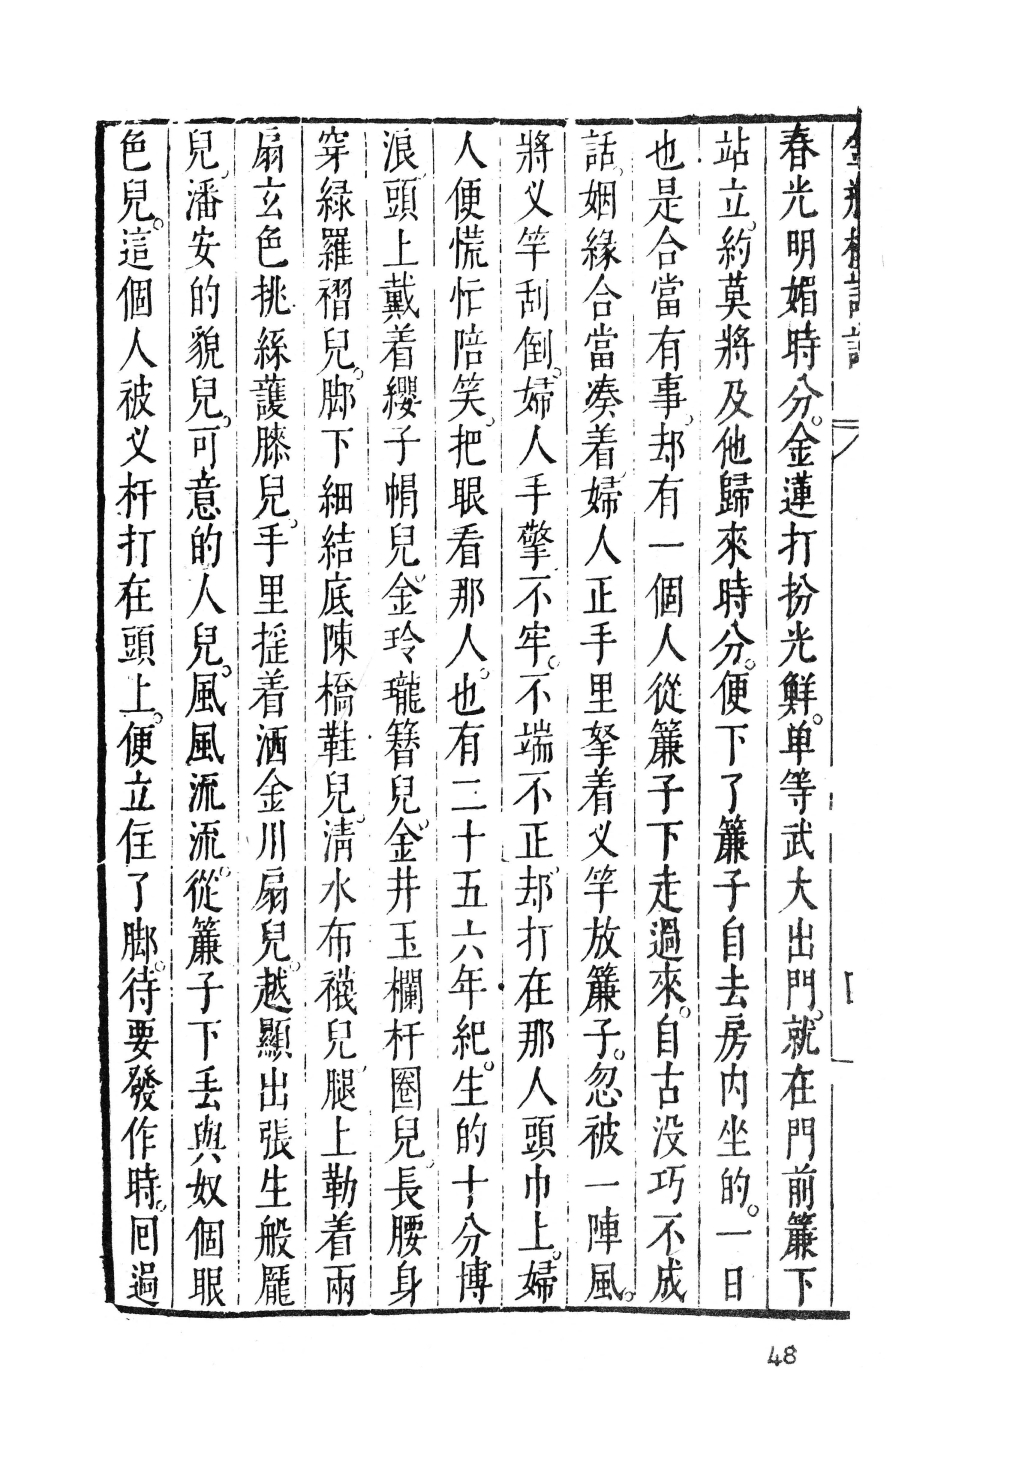 春光明媚時分。金蓮打扮光鮮。单等武大出門。就在門前簾下
站立。約莫將及他歸來時分。便下了簾子自去房内坐的。一日
也是合當有事。却有一個人從簾子下走過來。自古没巧不成
話。姻緣合當凑着。婦人正手里拏着义竿放簾子。忽被一陣風。
將义竿刮倒。婦人手擎不牢。不端不正。却打在那人頭巾上。婦
人便慌忙陪笑。把眼看那人。也有二十五六年紀。生的十分博
浪。頭上戴着纓子帽兒。金玲瓏簪兒。金井玉欄杆圈兒。長腰身
穿緑羅褶兒。脚下細結底陳橋鞋兒。清水布襪兒。腿上勒着兩
扇玄色挑絲護膝兒。手里摇着洒金川扇兒。越顯出張生般龐
兒。潘安的貌兒。可意的人兒。風風流流。從簾子下丢與奴個眼
色兒。這個人被义杆打在頭上。便立住了脚。待要發作時。回過
48